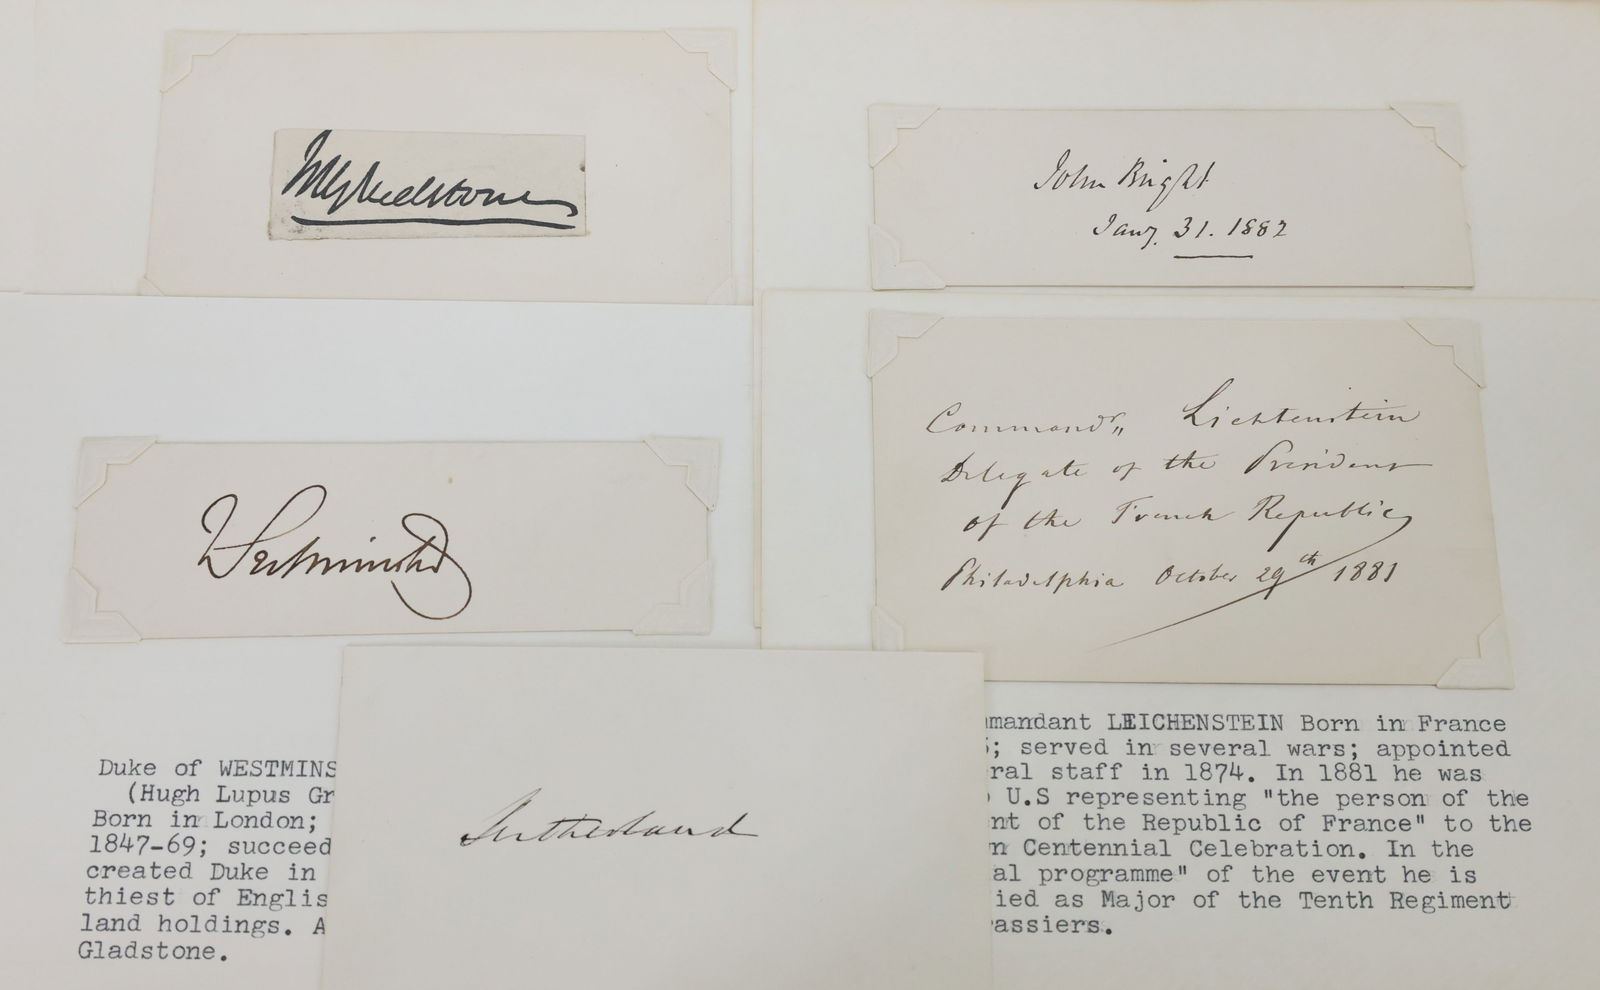 WGladstone
John Bright
Jany. 31. 1882
Westminster
Commandr„ Lichtenstein
Delegate of the President
of the French Republic
Philadelphia October 29th 1881
Sutherland
Duke of WESTMINS
(Hugh Lupus Gr
Born in London;
1847-69; succeed
created Duke in
thiest of Englis
land holdings. A
Gladstone.
mmandant LEICHENSTEIN Born in France
5; served in several wars; appointed
ral staff in 1874. In 1881 he was
U.S representing "the person of the
nt of the Republic of France" to the
n Centennial Celebration. In the
al programme" of the event he is
ied as Major of the Tenth Regiment
rassiers.